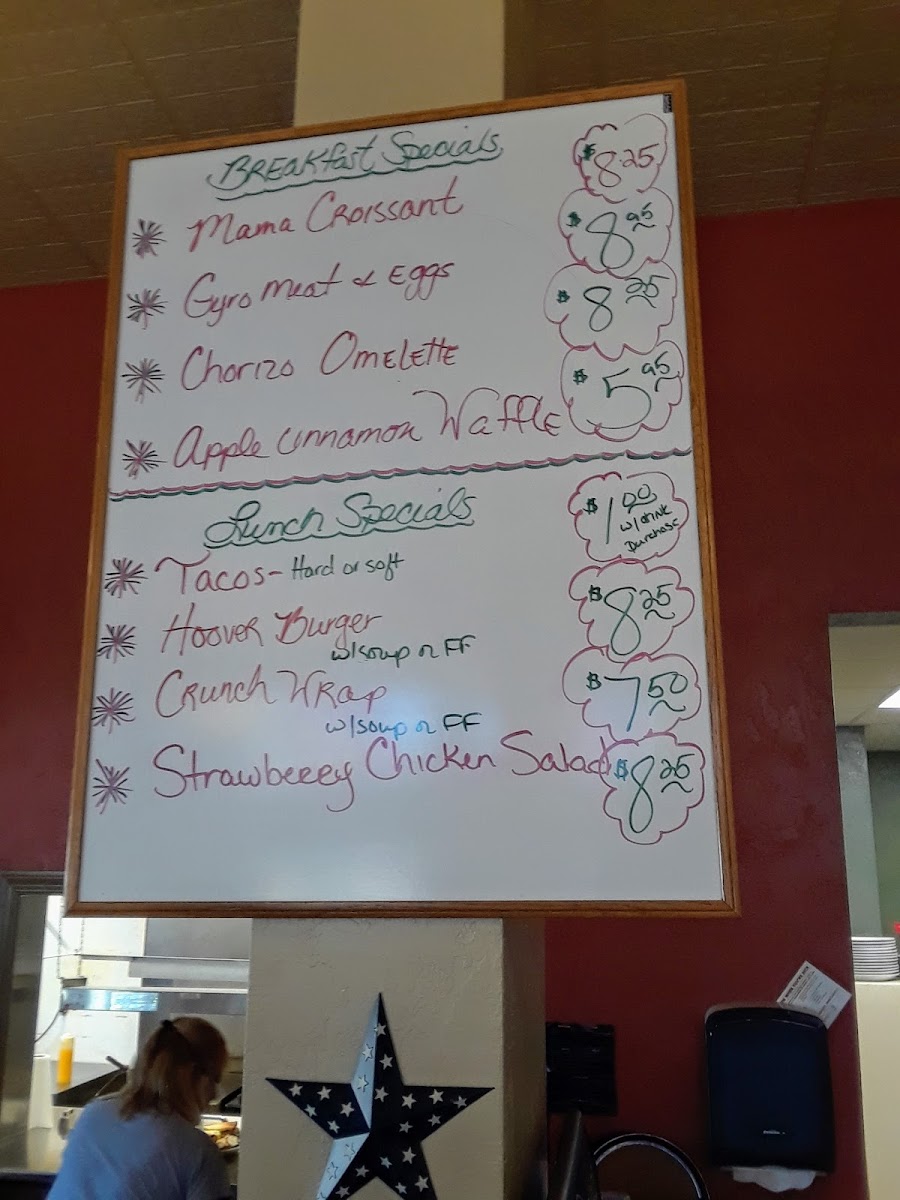 BREAKfast Specials
Mama CROissant $8.25
Gyro meat & EGGS $8.95
Chorizo OMELEttE $8.25
Apple Cinnamon WaffLE $5.95
Lunch Specials
Tacos - Hard or soft $1.00
w/drink
Purchase
HOOVER BuRger $8.25
w/soup or FF
CRunch WRap $7.50
w/soup or FF
Strawbeeey Chicken Salad $8.25